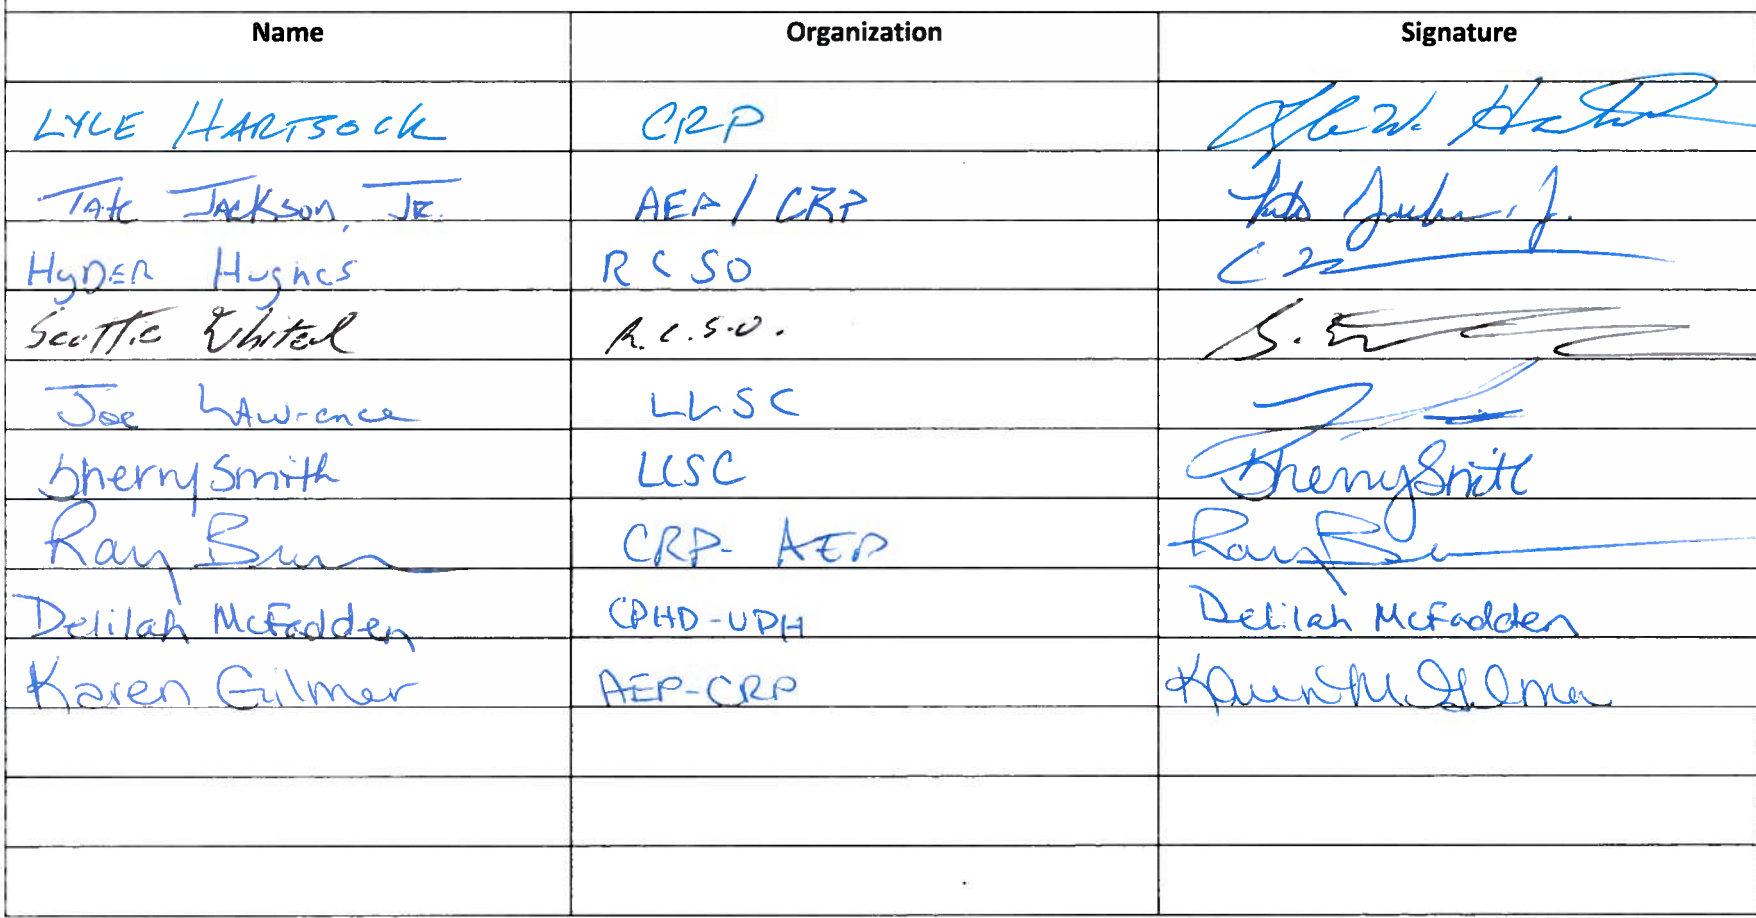 Name Organization Signature
LYLE HARTSOCK CRP Lyle W. Hartsock
TATE JACKSON, JR. AEP / CRP Tate Jackson, Jr.
HYDER Hughes RCSO
Scottie Whited R.C.S.O. S.
Joe LAwrence LLSC
Sherry Smith LLSC Sherry Smith
Ray CRP- AEP Ray
Delilah McFadden CPHD-UPH Delilah McFadden
Karen Gilmer AEP-CRP Karen M Gilmer